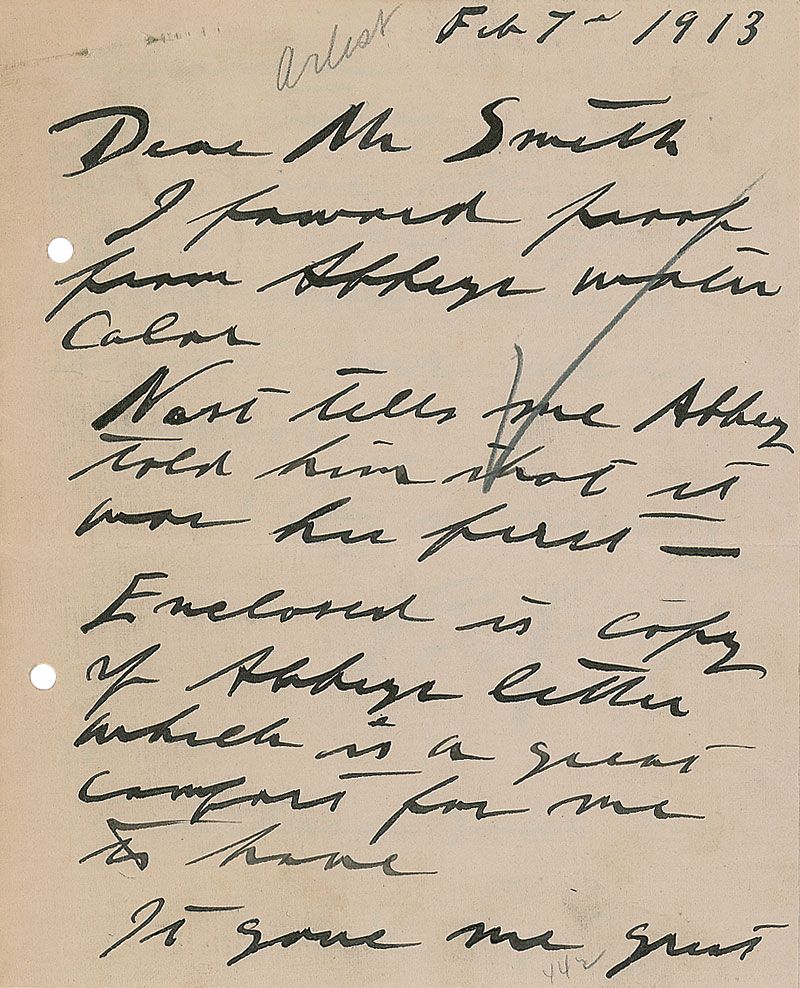 Feb 7th 1913
artist
Dear Mr Smith
I forward proof
from Abbeys water
Color
Nast tells me Abbey
told him that it
was his first —
Enclosed is copy
of Abbeys letter
which is a great
comfort for me
to have
It gave me great
442